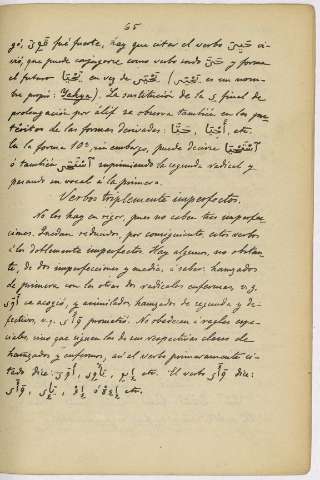 65
gó, قَوِىَ fué fuerte, hay que citar el verbo حَيِىَ vi-
vió, que puede conjugarse como verbo sordo حَىَّ y forma
el futuro يَحْيَا en vez de يَحْيَى (يَحْيَى es un nom-
bre propio: Yahya). La sustitución de la ى final de
prolongación por álif se observa también en los pre
téritos de las formas derivadas: أَحْيَا, حَيَّا, etc.
En la forma 10ª, sin embargo, puede decirse اَسْتَحْيَا
ó también اَسْتَحَى suprimiendo la segunda radical y
pasando su vocal á la primera.
Verbos triplemente imperfectos.
No los hay en rigor, pues no caben tres imperfec-
ciones. Quedan reducidos, por consiguiente, estos verbos
á los doblemente imperfectos. Hay algunos, no obstan-
te, de dos imperfecciones y media, á saber: hamzados
de primera con las otras dos radicales enfermas, v.g.
أَوَى se acogió, y asimilados hamzados de segunda y de-
fectivos, v.g. وَأَى prometió. No obedecen á reglas espe-
ciales, sino que siguen las de sus respectivas clases de
hamzados y enfermos, así el verbo primeramente ci-
tado dice: أَوَى, يَأْوِى, etc. El verbo وَأَى dice:
وَأَى, etc.